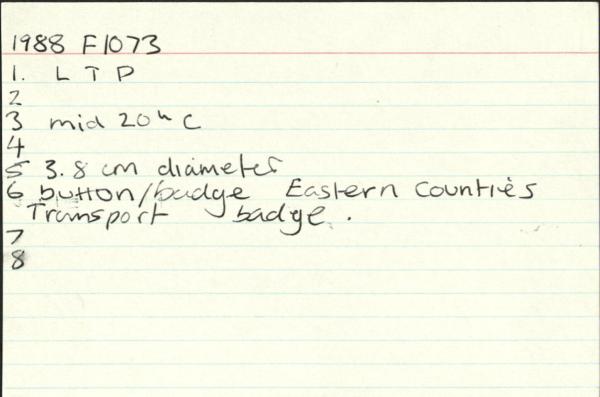 1988 F1073
1. L T P
2
3 mid 20th C
4
5 3.8 cm diameter
6 button/badge Eastern Counties
Transport badge.
7
8